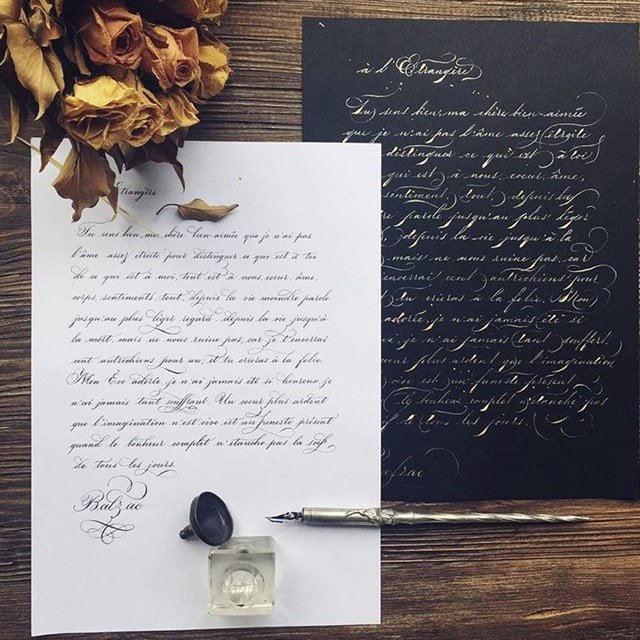 Etrangère
Tu sens bien, ma chère bien-aimée que je n'ai pas
l'âme assez étroite pour distinguer ce qui est à toi
de ce qui est à moi, tout est à nous, coeur, âme,
corps, sentiments tout, depuis la vie moindre parole
jusqu'au plus léger regard, depuis la vie jusqu'à
la mort, mais ne nous ruine pas, car je t'enverrai
cent autrichiens pour un, et tu crieras à la folie.
Mon Eve adorée, je n'ai jamais été si heureux, je
n'ai jamais tant souffrant. Un coeur plus ardent
que l'imagination n'est vive est un funeste présent
quand le bonheur complet n'étanche pas la soif
de tous les jours.
Balzac
à l'Etrangère
Tu sens bien, ma chère bien-aimée
que je n'ai pas l'âme assez étroite
distinguer ce qui est à toi
qui est à nous, coeur, âme,
sentiment tout, depuis la
parole jusqu'au plus léger
depuis la vie jusqu'à la
mais ne nous ruine pas, car
enverrai cent autrichiens pour
tu crieras à la folie. Mon
adorée, je n'ai jamais été si
je n'ai jamais tant souffert.
coeur plus ardent que l'imagination
vive est un funeste présent
le bonheur complet n'étanche pas
de tous les jours.
Balzac